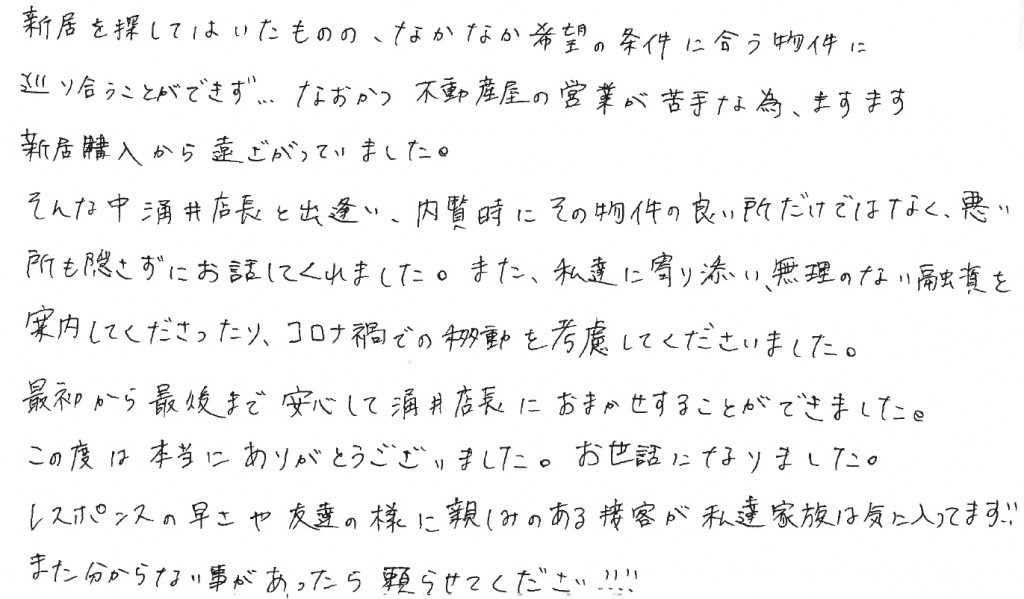 新居を探してはいたものの、なかなか希望の条件に合う物件に
巡り合うことができず... なおかつ 不動産屋の営業が苦手な為、ますます
新居購入から遠ざがっていました。
そんな中 涌井店長と出逢い、内覧時にその物件の良い所だけではなく、悪い
所も隠さずにお話してくれました。また、私達に寄り添い、無理のない融資を
案内してくださったり、コロナ禍での移動を考慮してくださいました。
最初から最後まで安心して涌井店長におまかせすることができました。
この度は本当にありがとうございました。お世話になりました。
レスポンスの早さや友達の様に親しみのある接客が私達家族は気に入ってます!!
また分からない事があったら頼らせてください!!!!